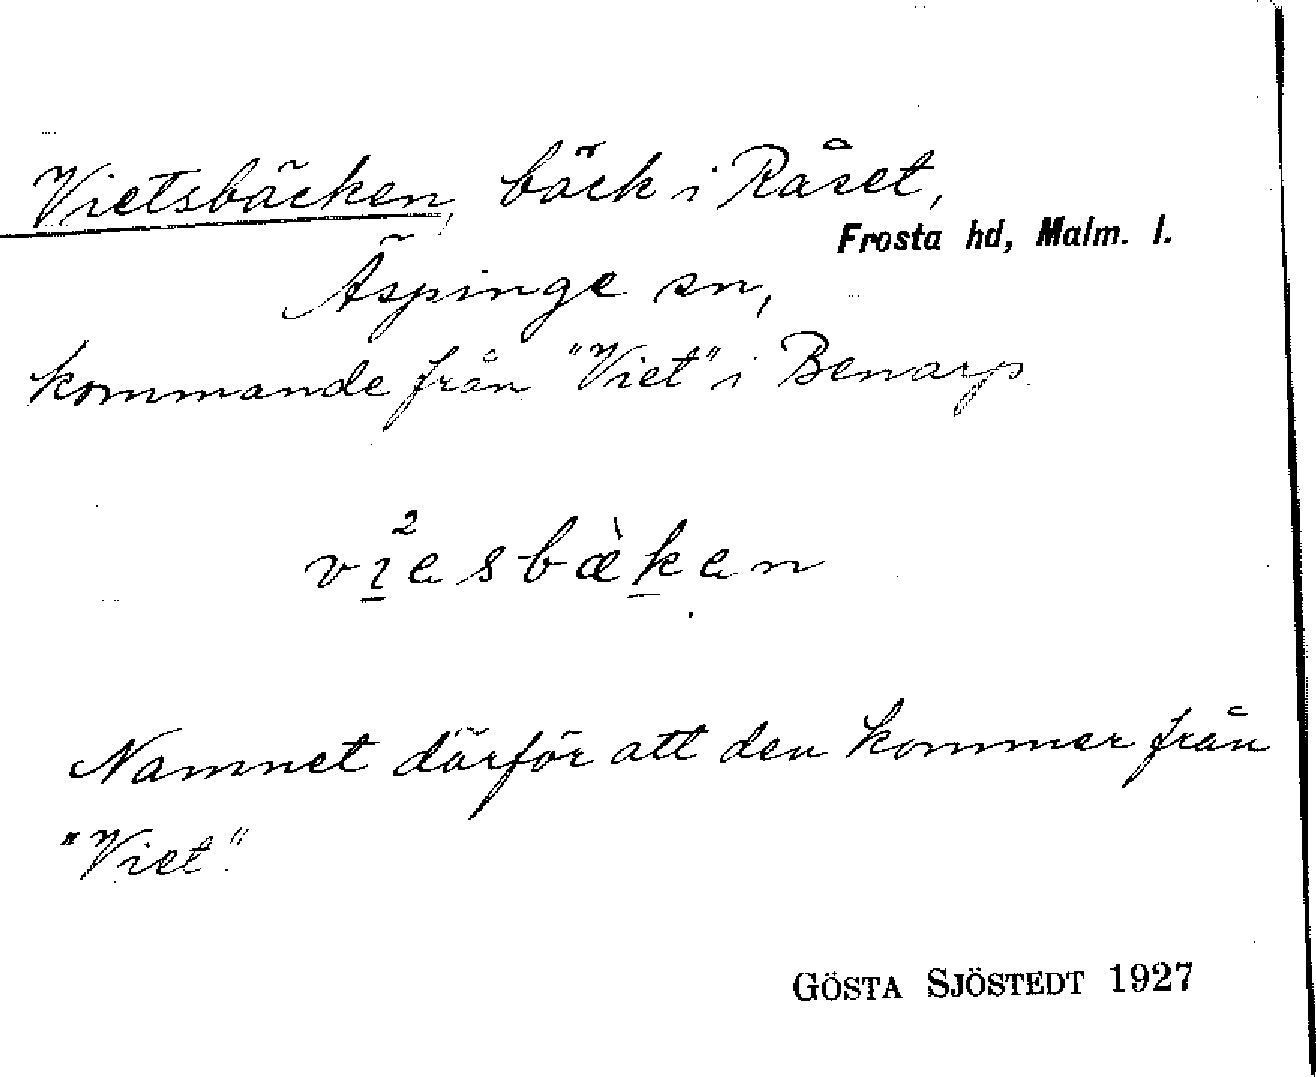 Vietsbäcken, bäck i Råset,
Frosta hd, Malm. l.
Äspinge sn,
kommande från "Viet" i Benarp.
vi²esbæ̀ken
Namnet därför att den kommer från
"Viet".
GÖSTA SJÖSTEDT 1927